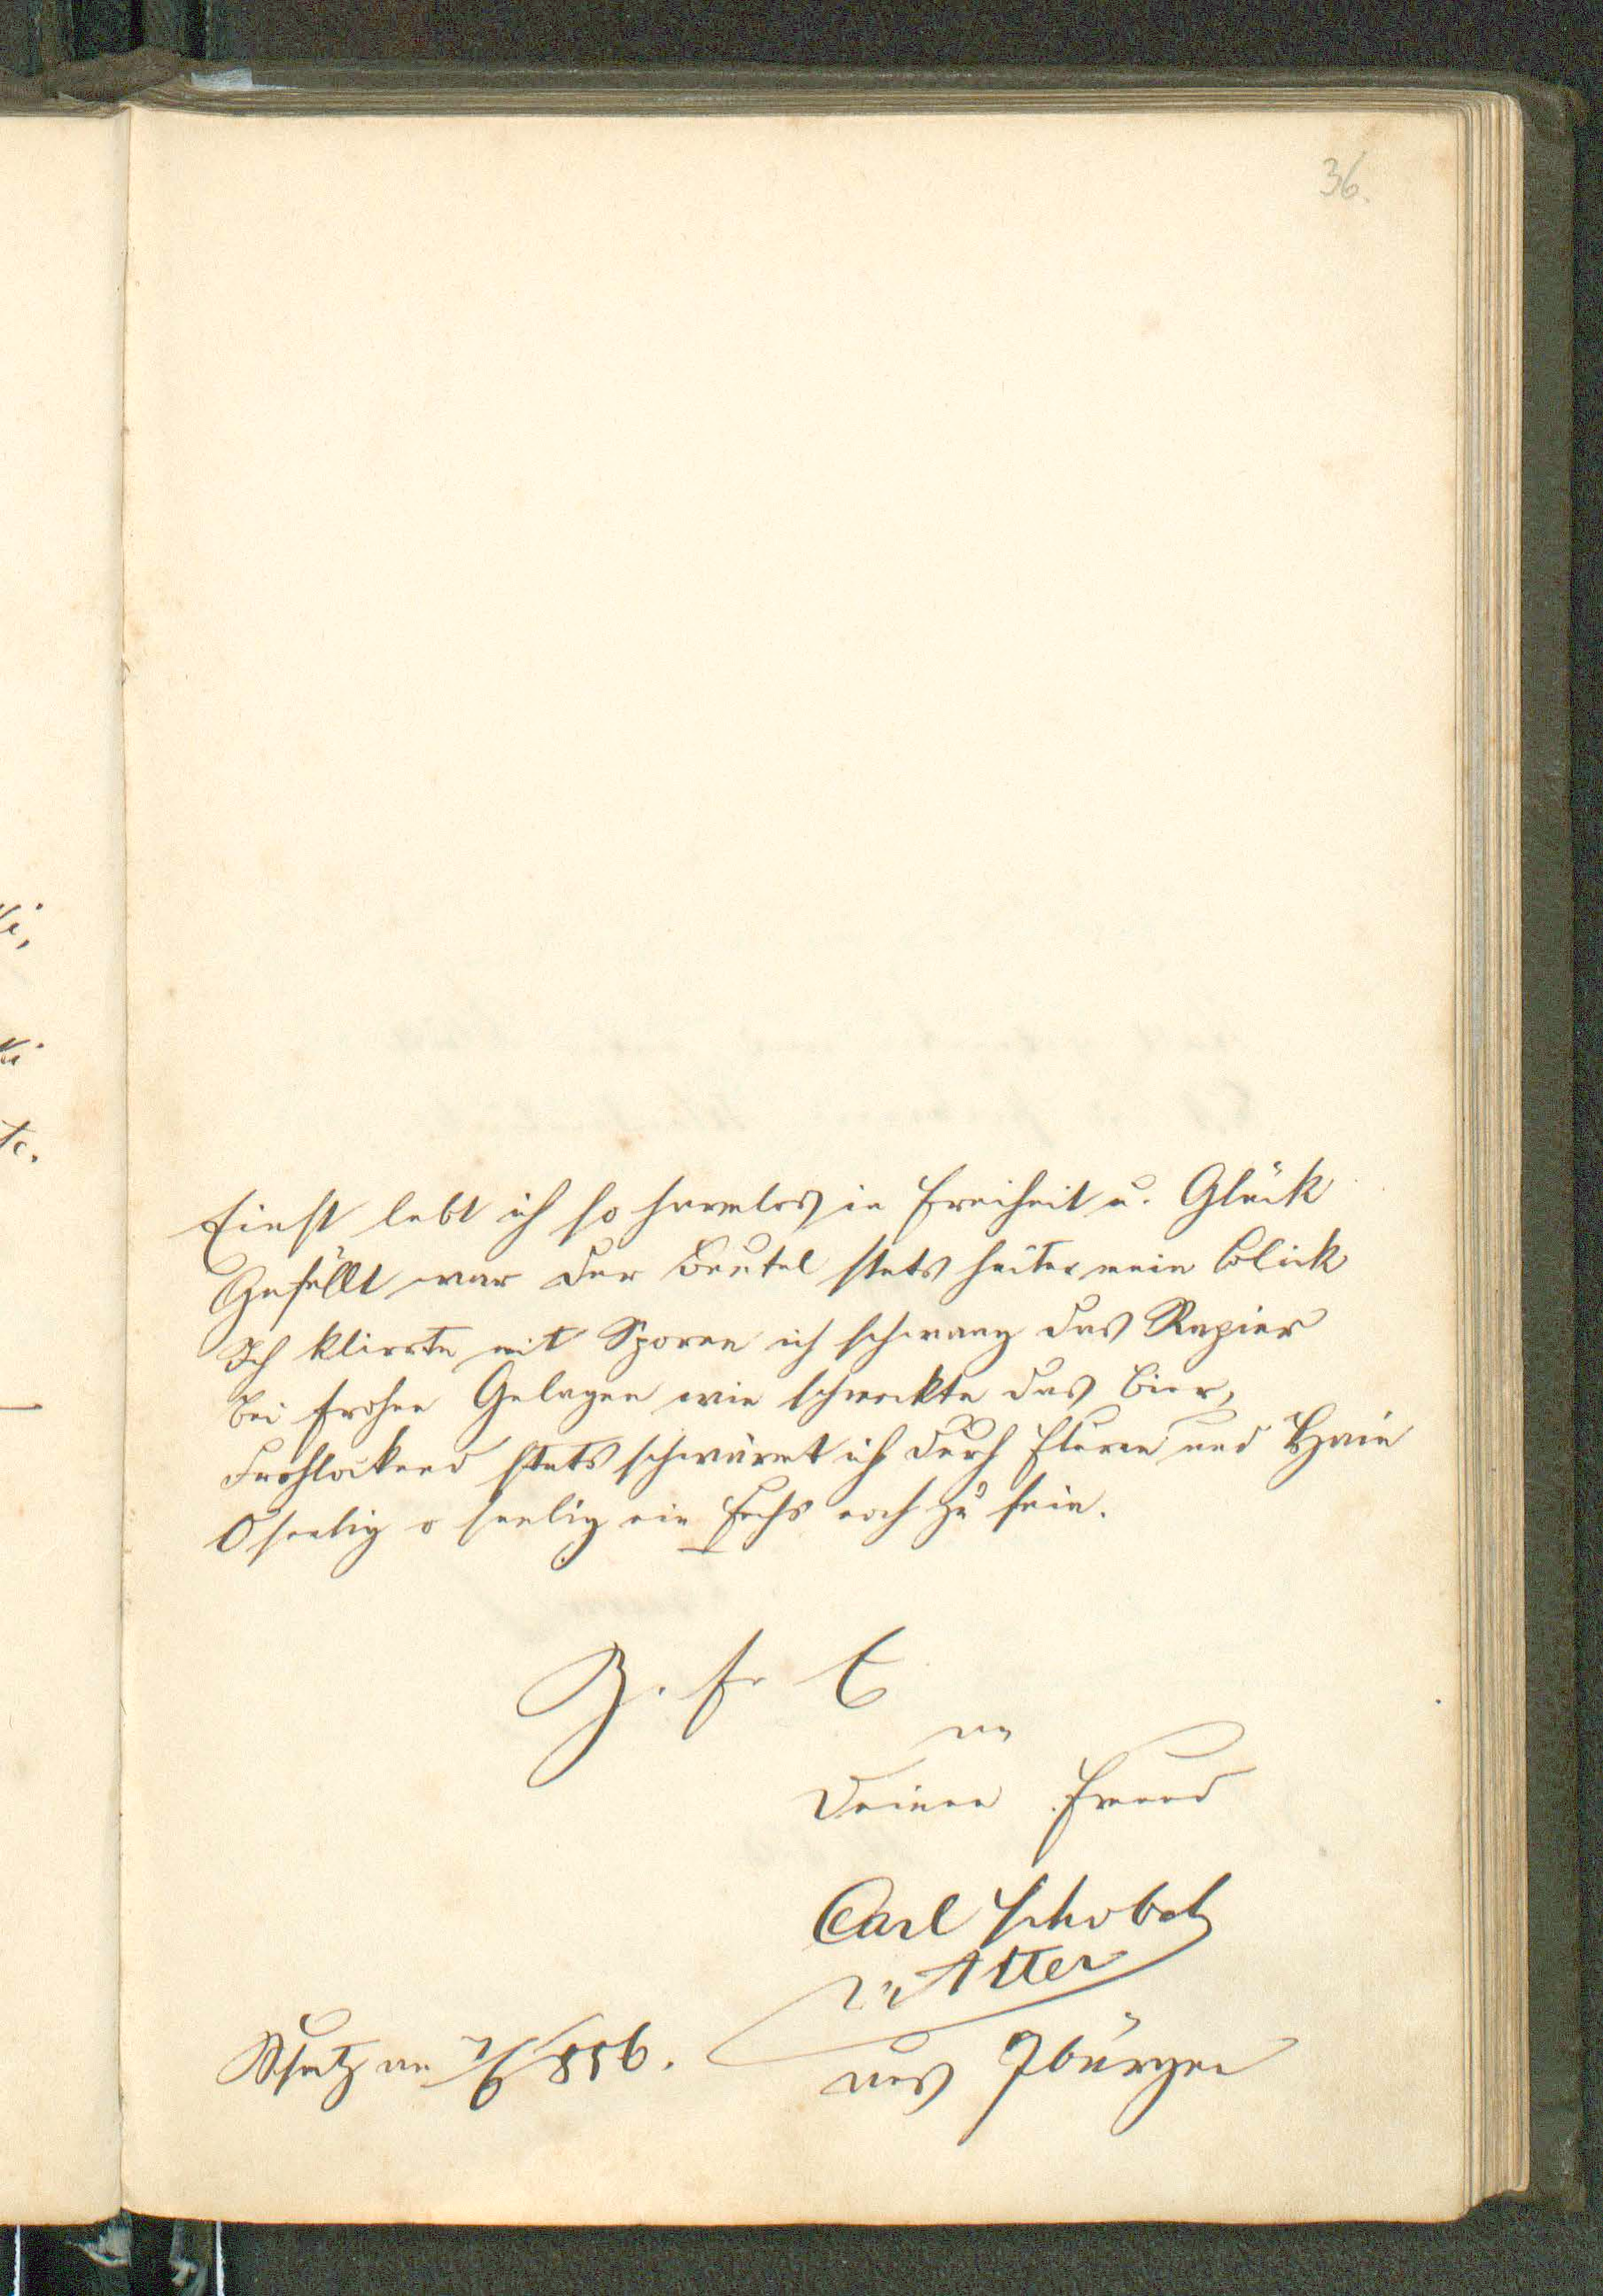 36.
Einst lebt ich so harmlos in Freiheit u. Glück
Gefüllt war der Beutel stets heiter mein Blick
Ich klirrte mit Sporen ich schwang das Rapier
Bei frohen Gelagen wie schmeckte das Bier,
Frohlockend stets schwärmt ich durch Fluren und Hain
O seelig o seelig ein Fuchs noch zu sein.
Z. fr. E
an
Deinen Freund
Carl Schobel
v. Atter
aus Iburgen
am 7/6 856.